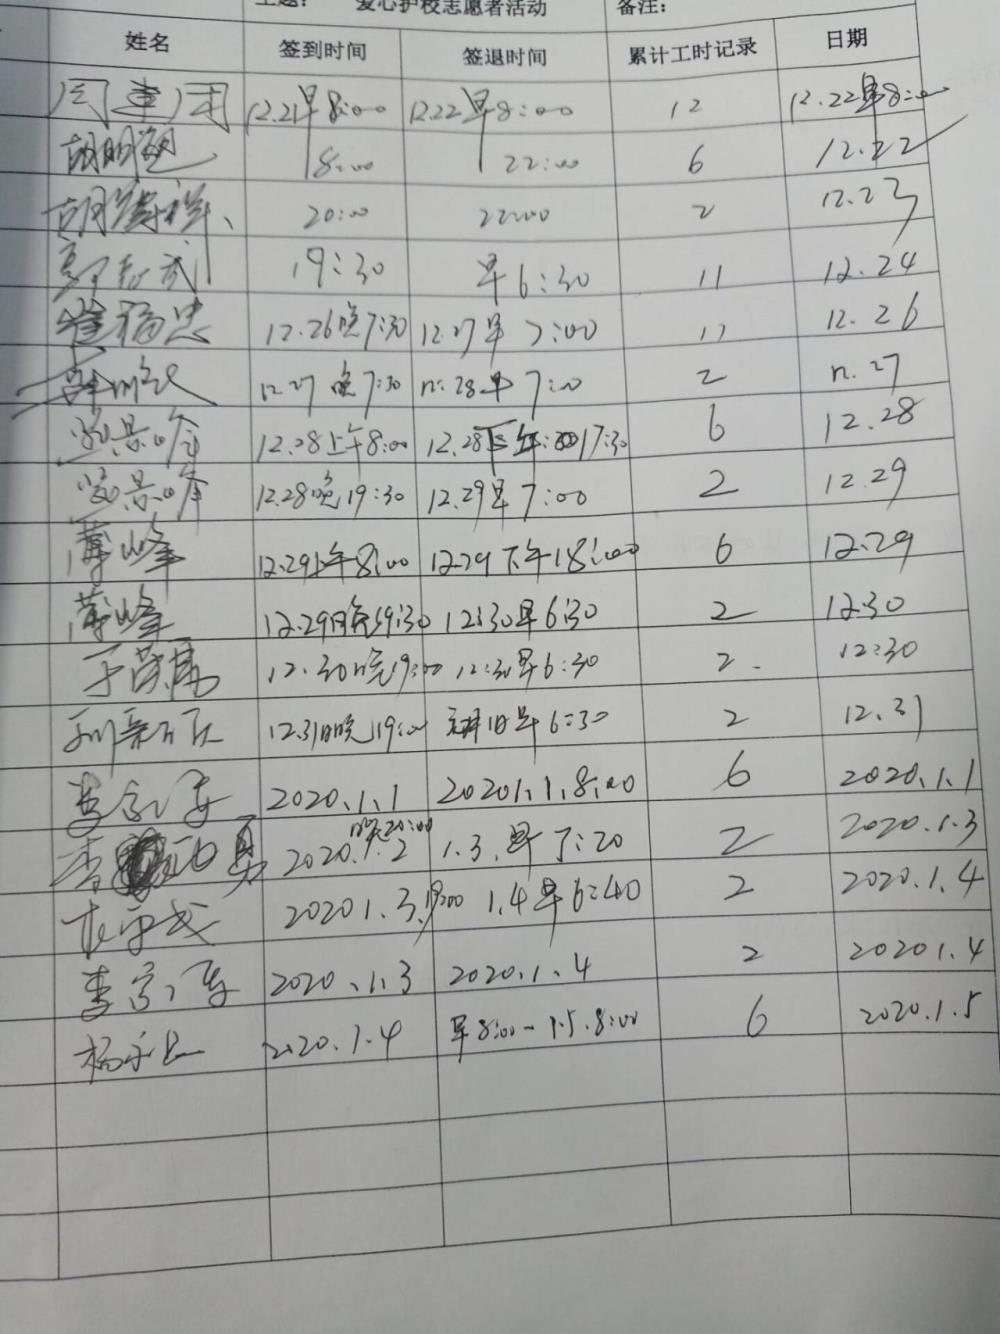 主题： 爱心护校志愿者活动 备注：
姓名 签到时间 签退时间 累计工时记录 日期
12.21早8:00 12.22早8:00 12 12.22早8:00
胡明 8:00 22:00 6 12.22
胡 20:00 22:00 2 12.23
武 19:30 早6:30 11 12.24
崔福忠 12.26晚7:30 12.27早7:00 11 12.26
12.27晚7:30 12.28早7:00 2 12.27
景峰 12.28上午8:00 12.28下午 17:30 6 12.28
景峰 12.28晚19:30 12.29早7:00 2 12.29
薄峰 12.29上午8:00 12.29下午18:00 6 12.29
薄峰 12.29日晚19:30 12:30早6:30 2 12.30
于荣 12.30晚19:00 12:30早6:30 2. 12:30
12.31日晚19:00 1日早6:30 2 12.31
李 2020.1.1 20201.1.8:00 6 2020.1.1
李 晚20:00 2020.1.2 1.3.早7:20 2 2020.1.3
20201.3.19:00 1.4早6:40 2 2020.1.4
李 2020.1.3 2020.1.4 2 20201.4
杨 2020.1.4 早8:00-1.5.8:00 6 2020.1.5